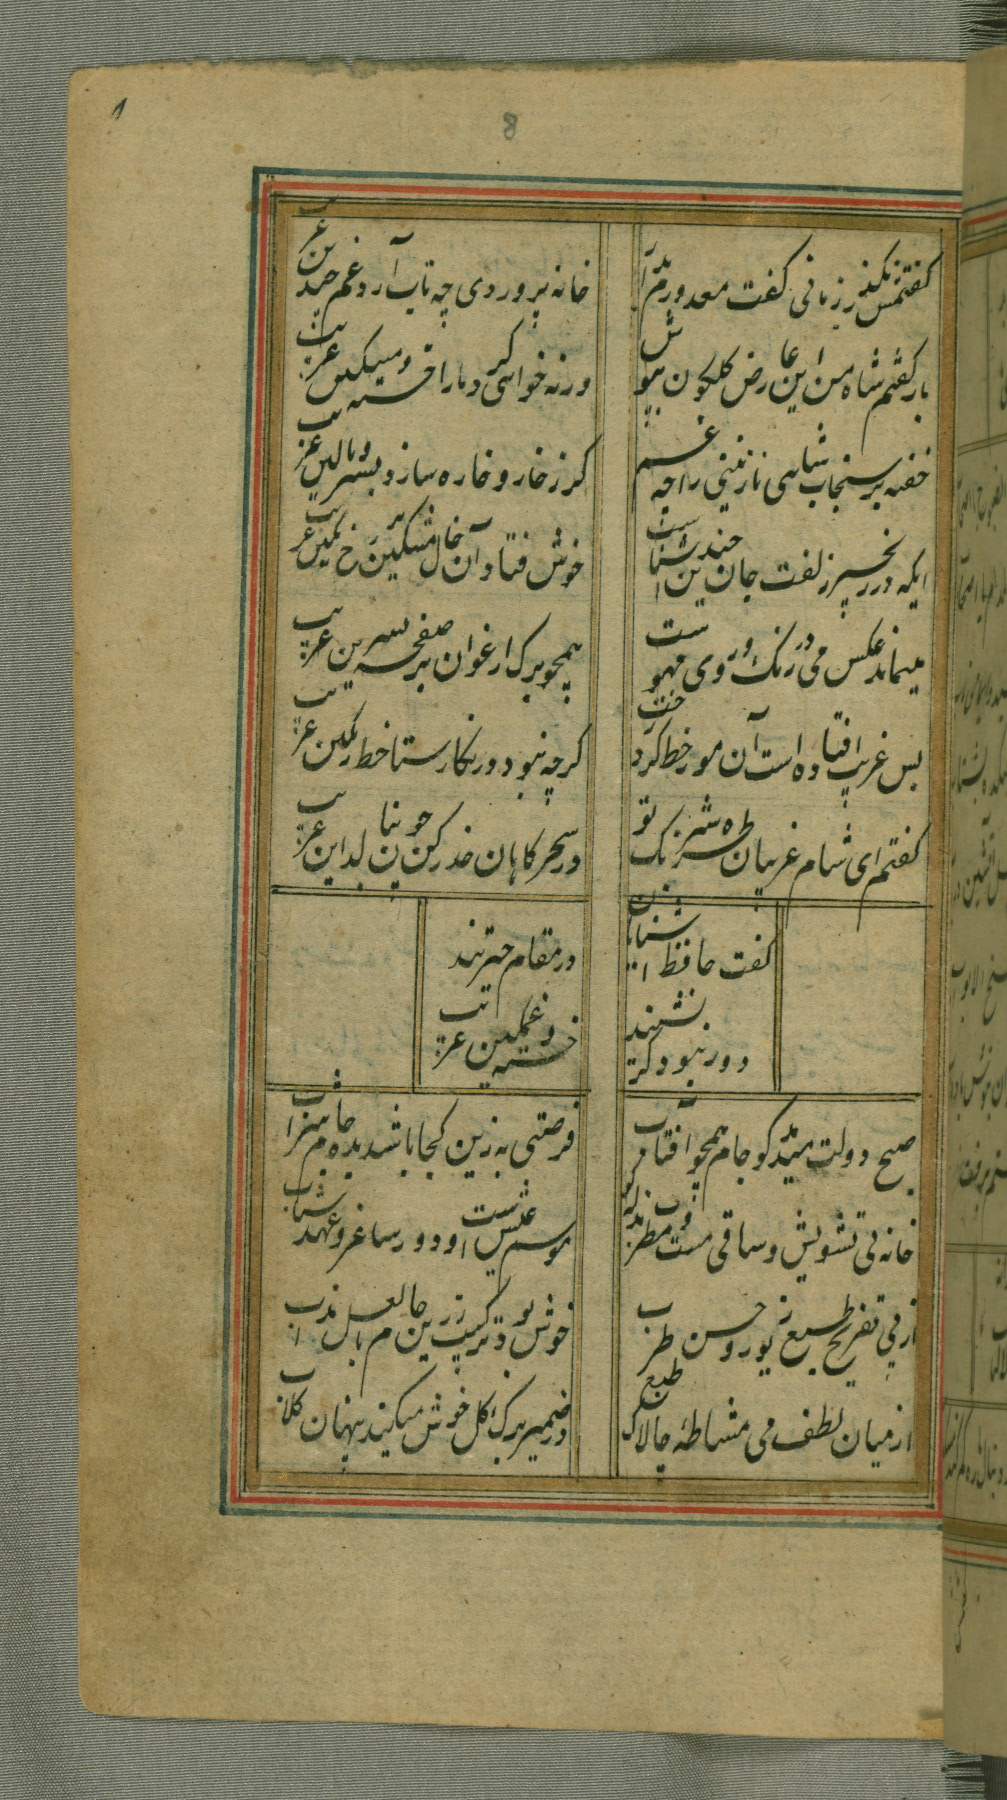 8
کفتمش مکذر زمانی کفت معذورم بدار
خانه پروردی چه تاب آرد غم چندین غریب
بار کفتم شاه من این عارض کلکون بپوش
ورنه خواهی کرد ما را خسته و مسکین غریب
خفته بر سنجاب شاهی نازنینی را چه غم
کر ز خار و خاره سازد بستر و بالین غریب
ایکه در زنجیر زلفت جان چندین آشناست
خوش فتاد آن خال مشکین بر رخ رنکین غریب
مینماید عکس می در رنک و روی مهوشت
همچو برک ارغوان بر صفحه نسرین غریب
بس غریب افتاده است آن مور خط کرد رخت
کرچه نبود در نکارستان خط رنکین غریب
کفتم ای شام غریبان طره شبرنک تو
در سحرکاهان حذر کن چون بنالد این غریب
کفت حافظ آشنایان
در مقام حیرتند
دور نبود کر نشیند
خسته و غمکین غریب
صبح دولت میدمد کو جام همچو آفتاب
فرصتی به زین کجا باشد بده جام شراب
خانه بی تشویش و ساقی مست و مطرب بذله کو
موسم عیش است و دور ساغر و عهد شباب
از پی تفریح طبع و زیور حسن طرب
خوش بود ترکیب زرین جام با لعل مذاب
از میان لطف می مشاطهٔ چالاک طبع
در ضمیر برک کل خوش میکند پنهان کلاب